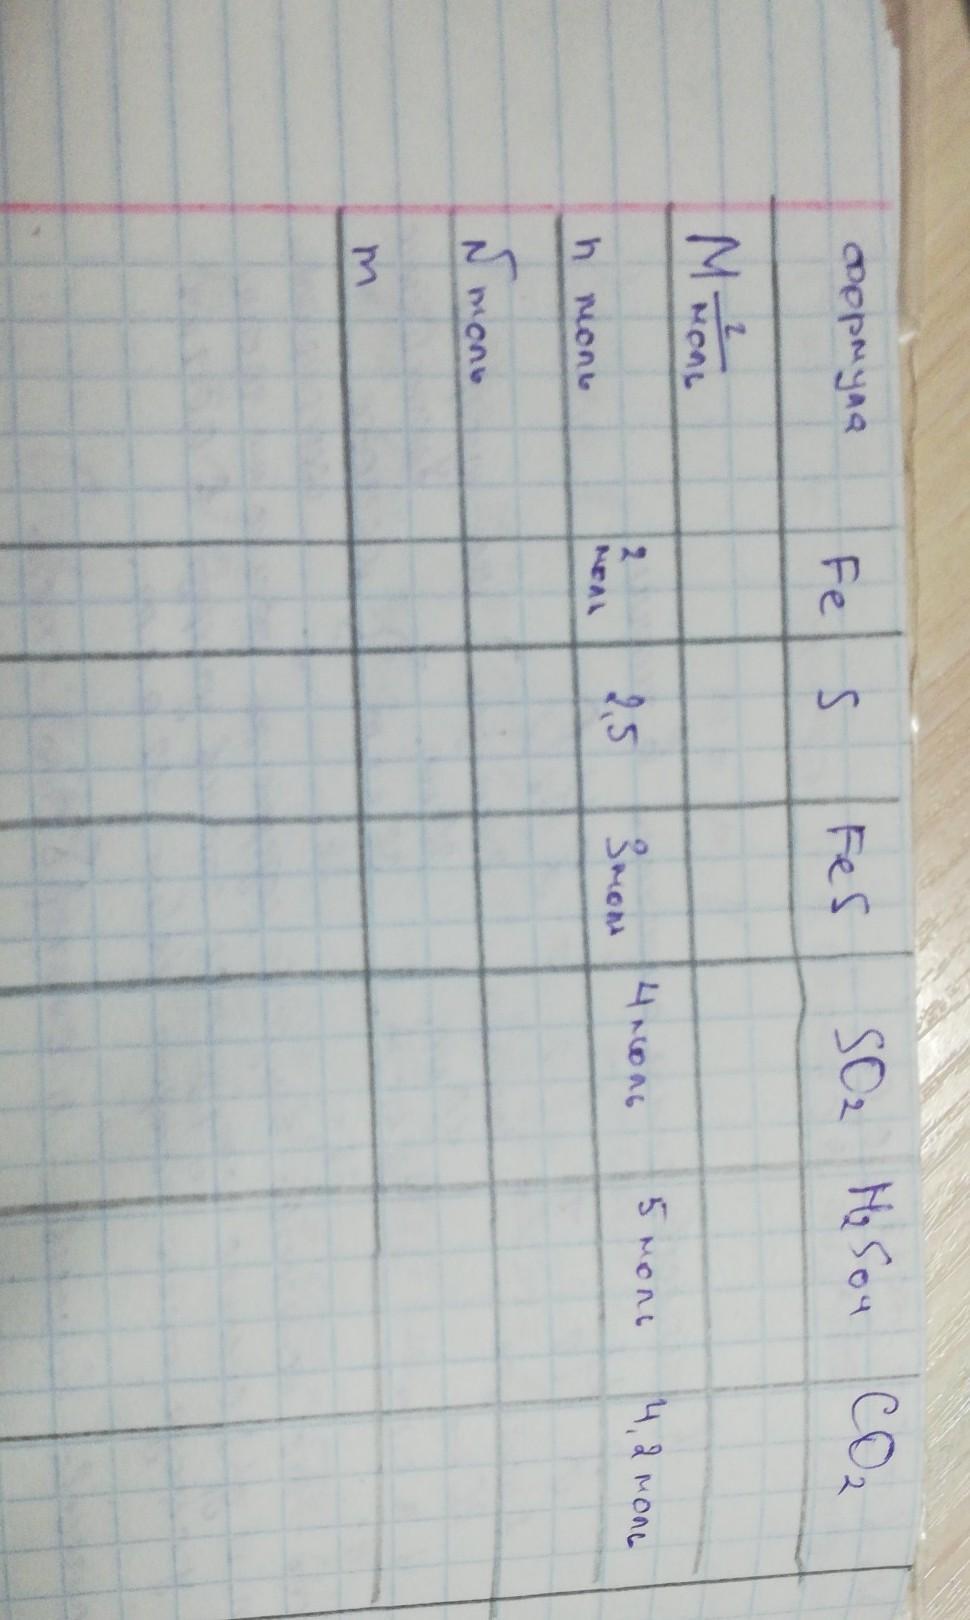 формула Fe S FeS SO2 H2SO4 CO2
M г/моль
n моль 2 моль 2,5 3 моль 4 моль 5 моль 4,2 моль
N моль
m